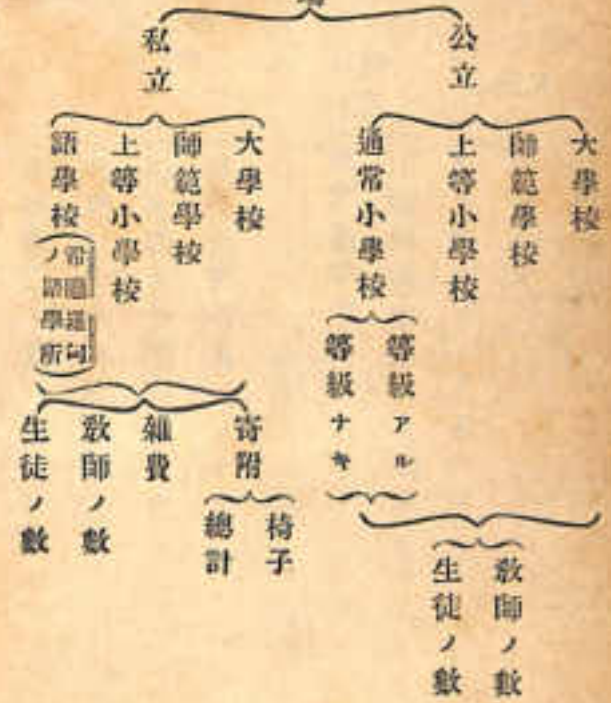 公立
大學校
師範學校
上等小學校
通常小學校
等級アル
等級ナキ
敎師ノ數
生徒ノ數
私立
大學校
師範學校
上等小學校
語學校
ノ語學所
寄附
椅子
總計
雜費
敎師ノ數
生徒ノ數